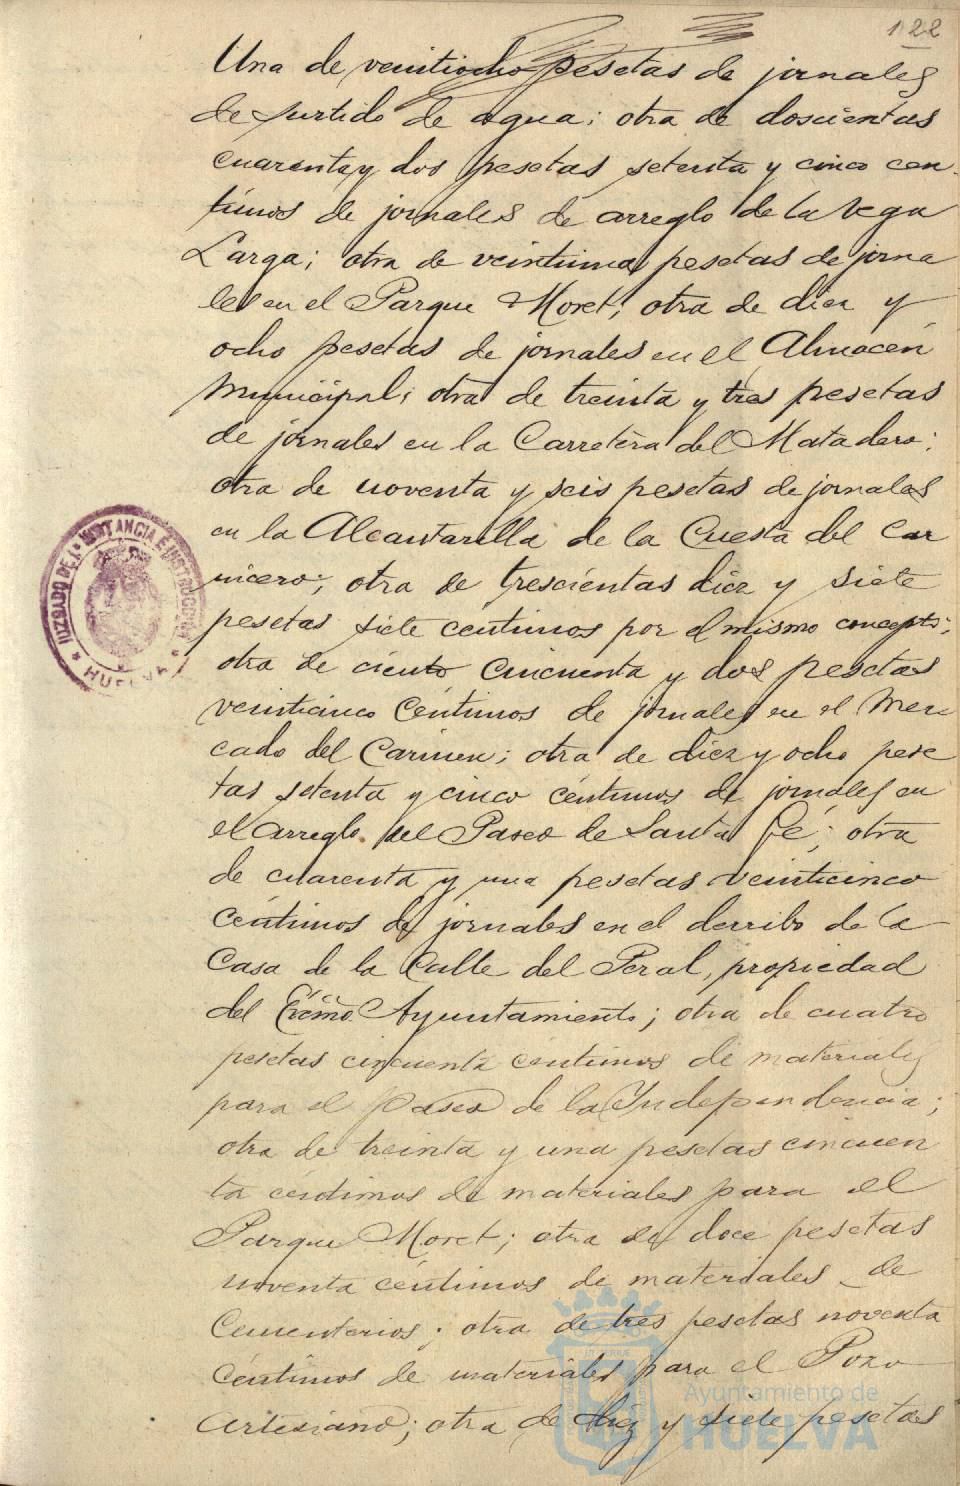 122
Una de veintiocho pesetas de jornales
de surtido de agua; otra de doscientas
cuarenta y dos pesetas setenta y cinco cen-
timos de jornales de arreglo de la Vega
Larga; otra de veintiuna pesetas de jorna
les en el Parque Moret; otra de diez y
ocho pesetas de jornales en el Almacén
Municipal; otra de treinta y tres pesetas
de jornales en la Carretera del Matadero;
otra de noventa y seis pesetas de jornales
en la Alcantarilla de la Cuesta del Car
nicero; otra de trescientas diez y siete
pesetas siete centimos por el mismo concepto;
otra de ciento cincuenta y dos pesetas
veinticinco céntimos de jornales en el Mer
cado del Carmen; otra de diez y ocho pese
tas setenta y cinco céntimos de jornales en
el arreglo del Paseo de Santa Fé; otra
de cuarenta y una pesetas veinticinco
céntimos de jornales en el derribo de la
Casa de la Calle del Peral, propiedad
del Excmo. Ayuntamiento; otra de cuatro
pesetas cincuenta céntimos de materiales
para el paseo de la Yndependencia;
otra de treinta y una pesetas cincuen
ta céntimos de materiales para el
Parque Moret; otra de doce pesetas
noventa céntimos de materiales de
Cementerios; otra de tres pesetas noventa
céntimos de materiales para el Pozo
Artesiano; otra de diez y siete pesetas
JUZGADO DE 1ª INSTANCIA É INSTRUCCION
* HUELVA *
Ayuntamiento de
HUELVA